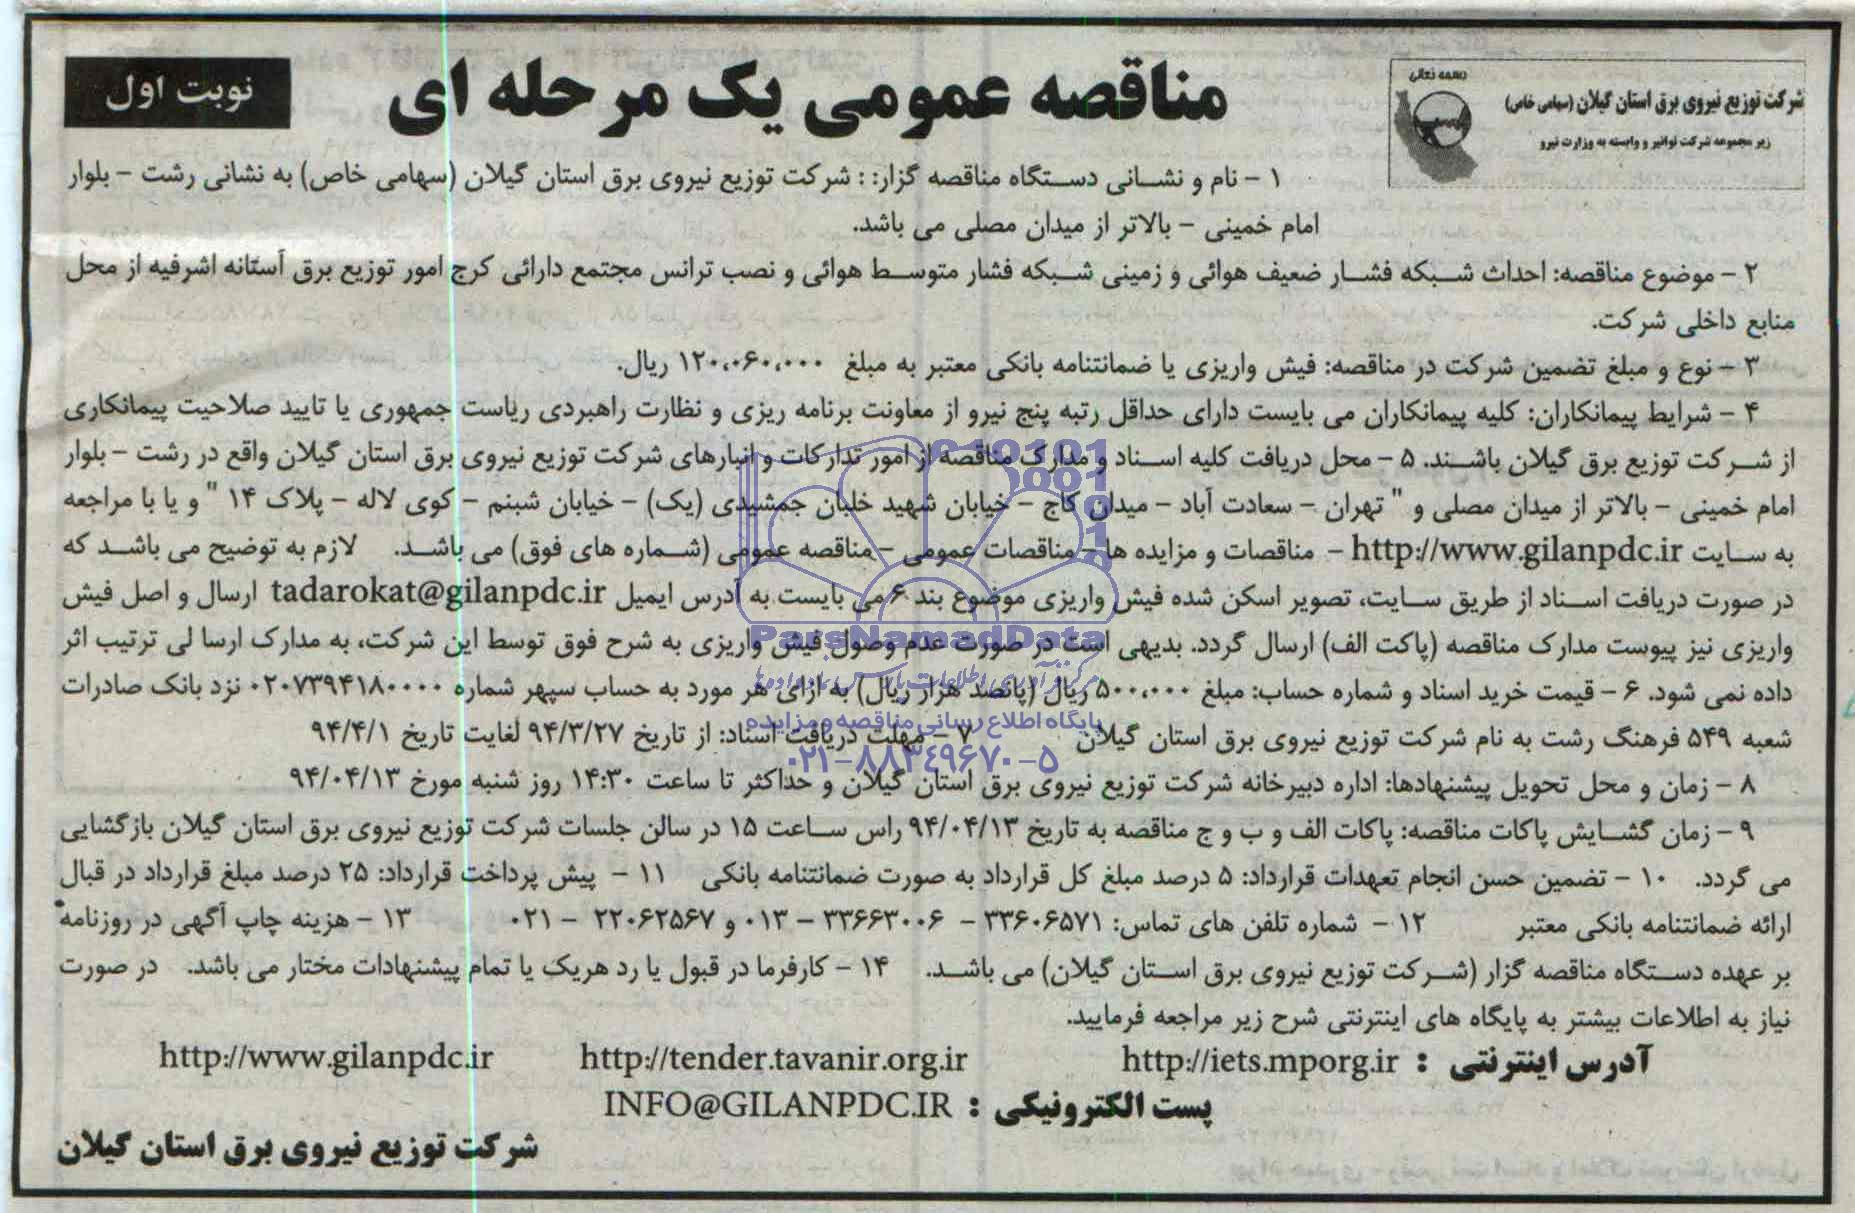 بسمه تعالی
شرکت توزیع نیروی برق استان گیلان (سهامی خاص)
زیر مجموعه شرکت توانیر و وابسته به وزارت نیرو
مناقصه عمومی یک مرحله ای
نوبت اول
۱ – نام و نشانی دستگاه مناقصه گزار: : شرکت توزیع نیروی برق استان گیلان (سهامی خاص) به نشانی رشت – بلوار
امام خمینی – بالاتر از میدان مصلی می باشد.
۲ – موضوع مناقصه: احداث شبکه فشار ضعیف هوائی و زمینی شبکه فشار متوسط هوائی و نصب ترانس مجتمع دارائی کرج امور توزیع برق آستانه اشرفیه از محل
منابع داخلی شرکت.
۳ – نوع و مبلغ تضمین شرکت در مناقصه: فیش واریزی یا ضمانتنامه بانکی معتبر به مبلغ ۱۲۰،۰۶۰،۰۰۰ ریال.
۴ – شرایط پیمانکاران: کلیه پیمانکاران می بایست دارای حداقل رتبه پنج نیرو از معاونت برنامه ریزی و نظارت راهبردی ریاست جمهوری یا تایید صلاحیت پیمانکاری
از شرکت توزیع برق گیلان باشند. ۵ – محل دریافت کلیه اسناد و مدارک مناقصه از امور تدارکات و انبارهای شرکت توزیع نیروی برق استان گیلان واقع در رشت – بلوار
امام خمینی – بالاتر از میدان مصلی و " تهران – سعادت آباد – میدان کاج – خیابان شهید خلبان جمشیدی (یک) – خیابان شبنم – کوی لاله – پلاک ۱۴ " و یا با مراجعه
به سایت http://www.gilanpdc.ir – مناقصات و مزایده ها – مناقصات عمومی – مناقصه عمومی (شماره های فوق) می باشد. لازم به توضیح می باشد که
در صورت دریافت اسناد از طریق سایت، تصویر اسکن شده فیش واریزی موضوع بند ۶ می بایست به آدرس ایمیل tadarokat@gilanpdc.ir ارسال و اصل فیش
واریزی نیز پیوست مدارک مناقصه (پاکت الف) ارسال گردد. بدیهی است در صورت عدم وصول فیش واریزی به شرح فوق توسط این شرکت، به مدارک ارسا لی ترتیب اثر
داده نمی شود. ۶ – قیمت خرید اسناد و شماره حساب: مبلغ ۵۰۰،۰۰۰ ریال (پانصد هزار ریال) به ازای هر مورد به حساب سپهر شماره ۰۲۰۷۳۹۴۱۸۰۰۰۰ نزد بانک صادرات
شعبه ۵۴۹ فرهنگ رشت به نام شرکت توزیع نیروی برق استان گیلان ۷ – مهلت دریافت اسناد: از تاریخ ۹۴/۳/۲۷ لغایت تاریخ ۹۴/۴/۱
۸ – زمان و محل تحویل پیشنهادها: اداره دبیرخانه شرکت توزیع نیروی برق استان گیلان و حداکثر تا ساعت ۱۴:۳۰ روز شنبه مورخ ۹۴/۰۴/۱۳
۹ – زمان گشایش پاکات مناقصه: پاکات الف و ب و ج مناقصه به تاریخ ۹۴/۰۴/۱۳ راس ساعت ۱۵ در سالن جلسات شرکت توزیع نیروی برق استان گیلان بازگشایی
می گردد. ۱۰ – تضمین حسن انجام تعهدات قرارداد: ۵ درصد مبلغ کل قرارداد به صورت ضمانتنامه بانکی ۱۱ – پیش پرداخت قرارداد: ۲۵ درصد مبلغ قرارداد در قبال
ارائه ضمانتنامه بانکی معتبر ۱۲ – شماره تلفن های تماس: ۳۳۶۰۶۵۷۱ – ۳۳۶۶۳۰۰۶ – ۰۱۳ و ۲۲۰۶۲۵۶۷ – ۰۲۱ ۱۳ – هزینه چاپ آگهی در روزنامه
بر عهده دستگاه مناقصه گزار (شرکت توزیع نیروی برق استان گیلان) می باشد. ۱۴ – کارفرما در قبول یا رد هریک یا تمام پیشنهادات مختار می باشد. در صورت
نیاز به اطلاعات بیشتر به پایگاه های اینترنتی شرح زیر مراجعه فرمایید.
آدرس اینترنتی : http://iets.mporg.ir http://tender.tavanir.org.ir http://www.gilanpdc.ir
پست الکترونیکی : INFO@GILANPDC.IR
شرکت توزیع نیروی برق استان گیلان
ParsNamadData
مرکز فرآوری اطلاعات پارس نماد داده ها
پایگاه اطلاع رسانی مناقصه و مزایده
۰۲۱-۸۸۳۴۹۶۷۰-۵